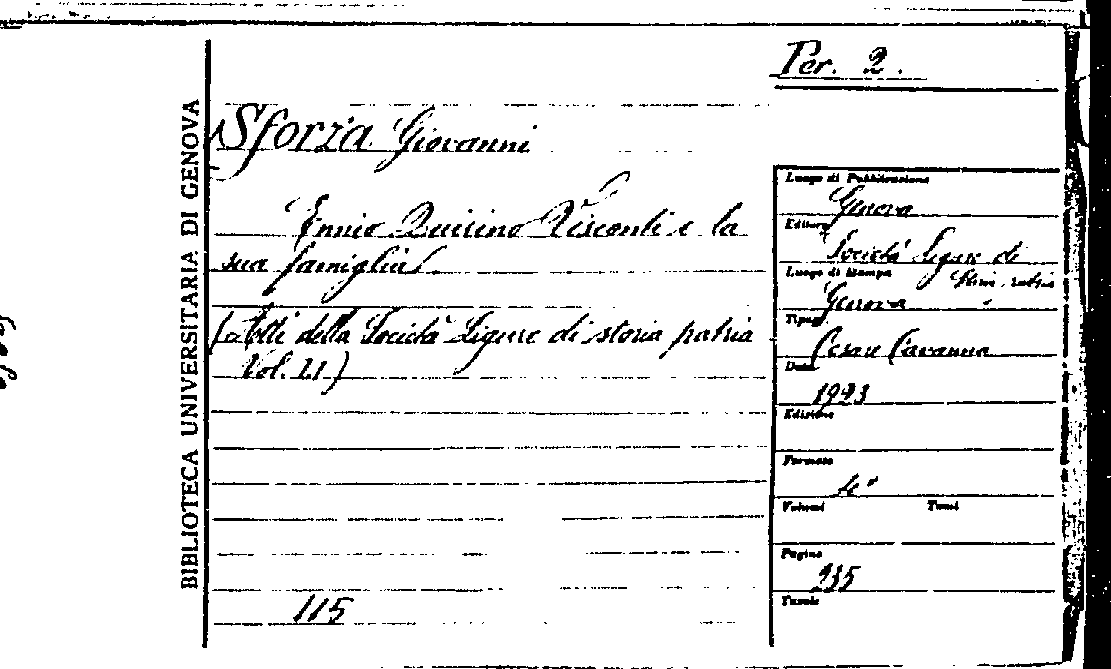 BIBLIOTECA UNIVERSITARIA DI GENOVA
Per. 2.
Sforza Giovanni
Ennio Quirino Visconti e la
sua famiglia.
(Atti della Società Ligure di storia patria
Vol. LI)
115
Luogo di Pubblicazione
Genova
Editore
Società Ligure di
Stori. patria
Luogo di Stampa
Genova
Tipogr.
Cesare Cavanna
Data
1923
Edizione
Formato
4°
Volumi Tomi
Pagine
235
Tavole